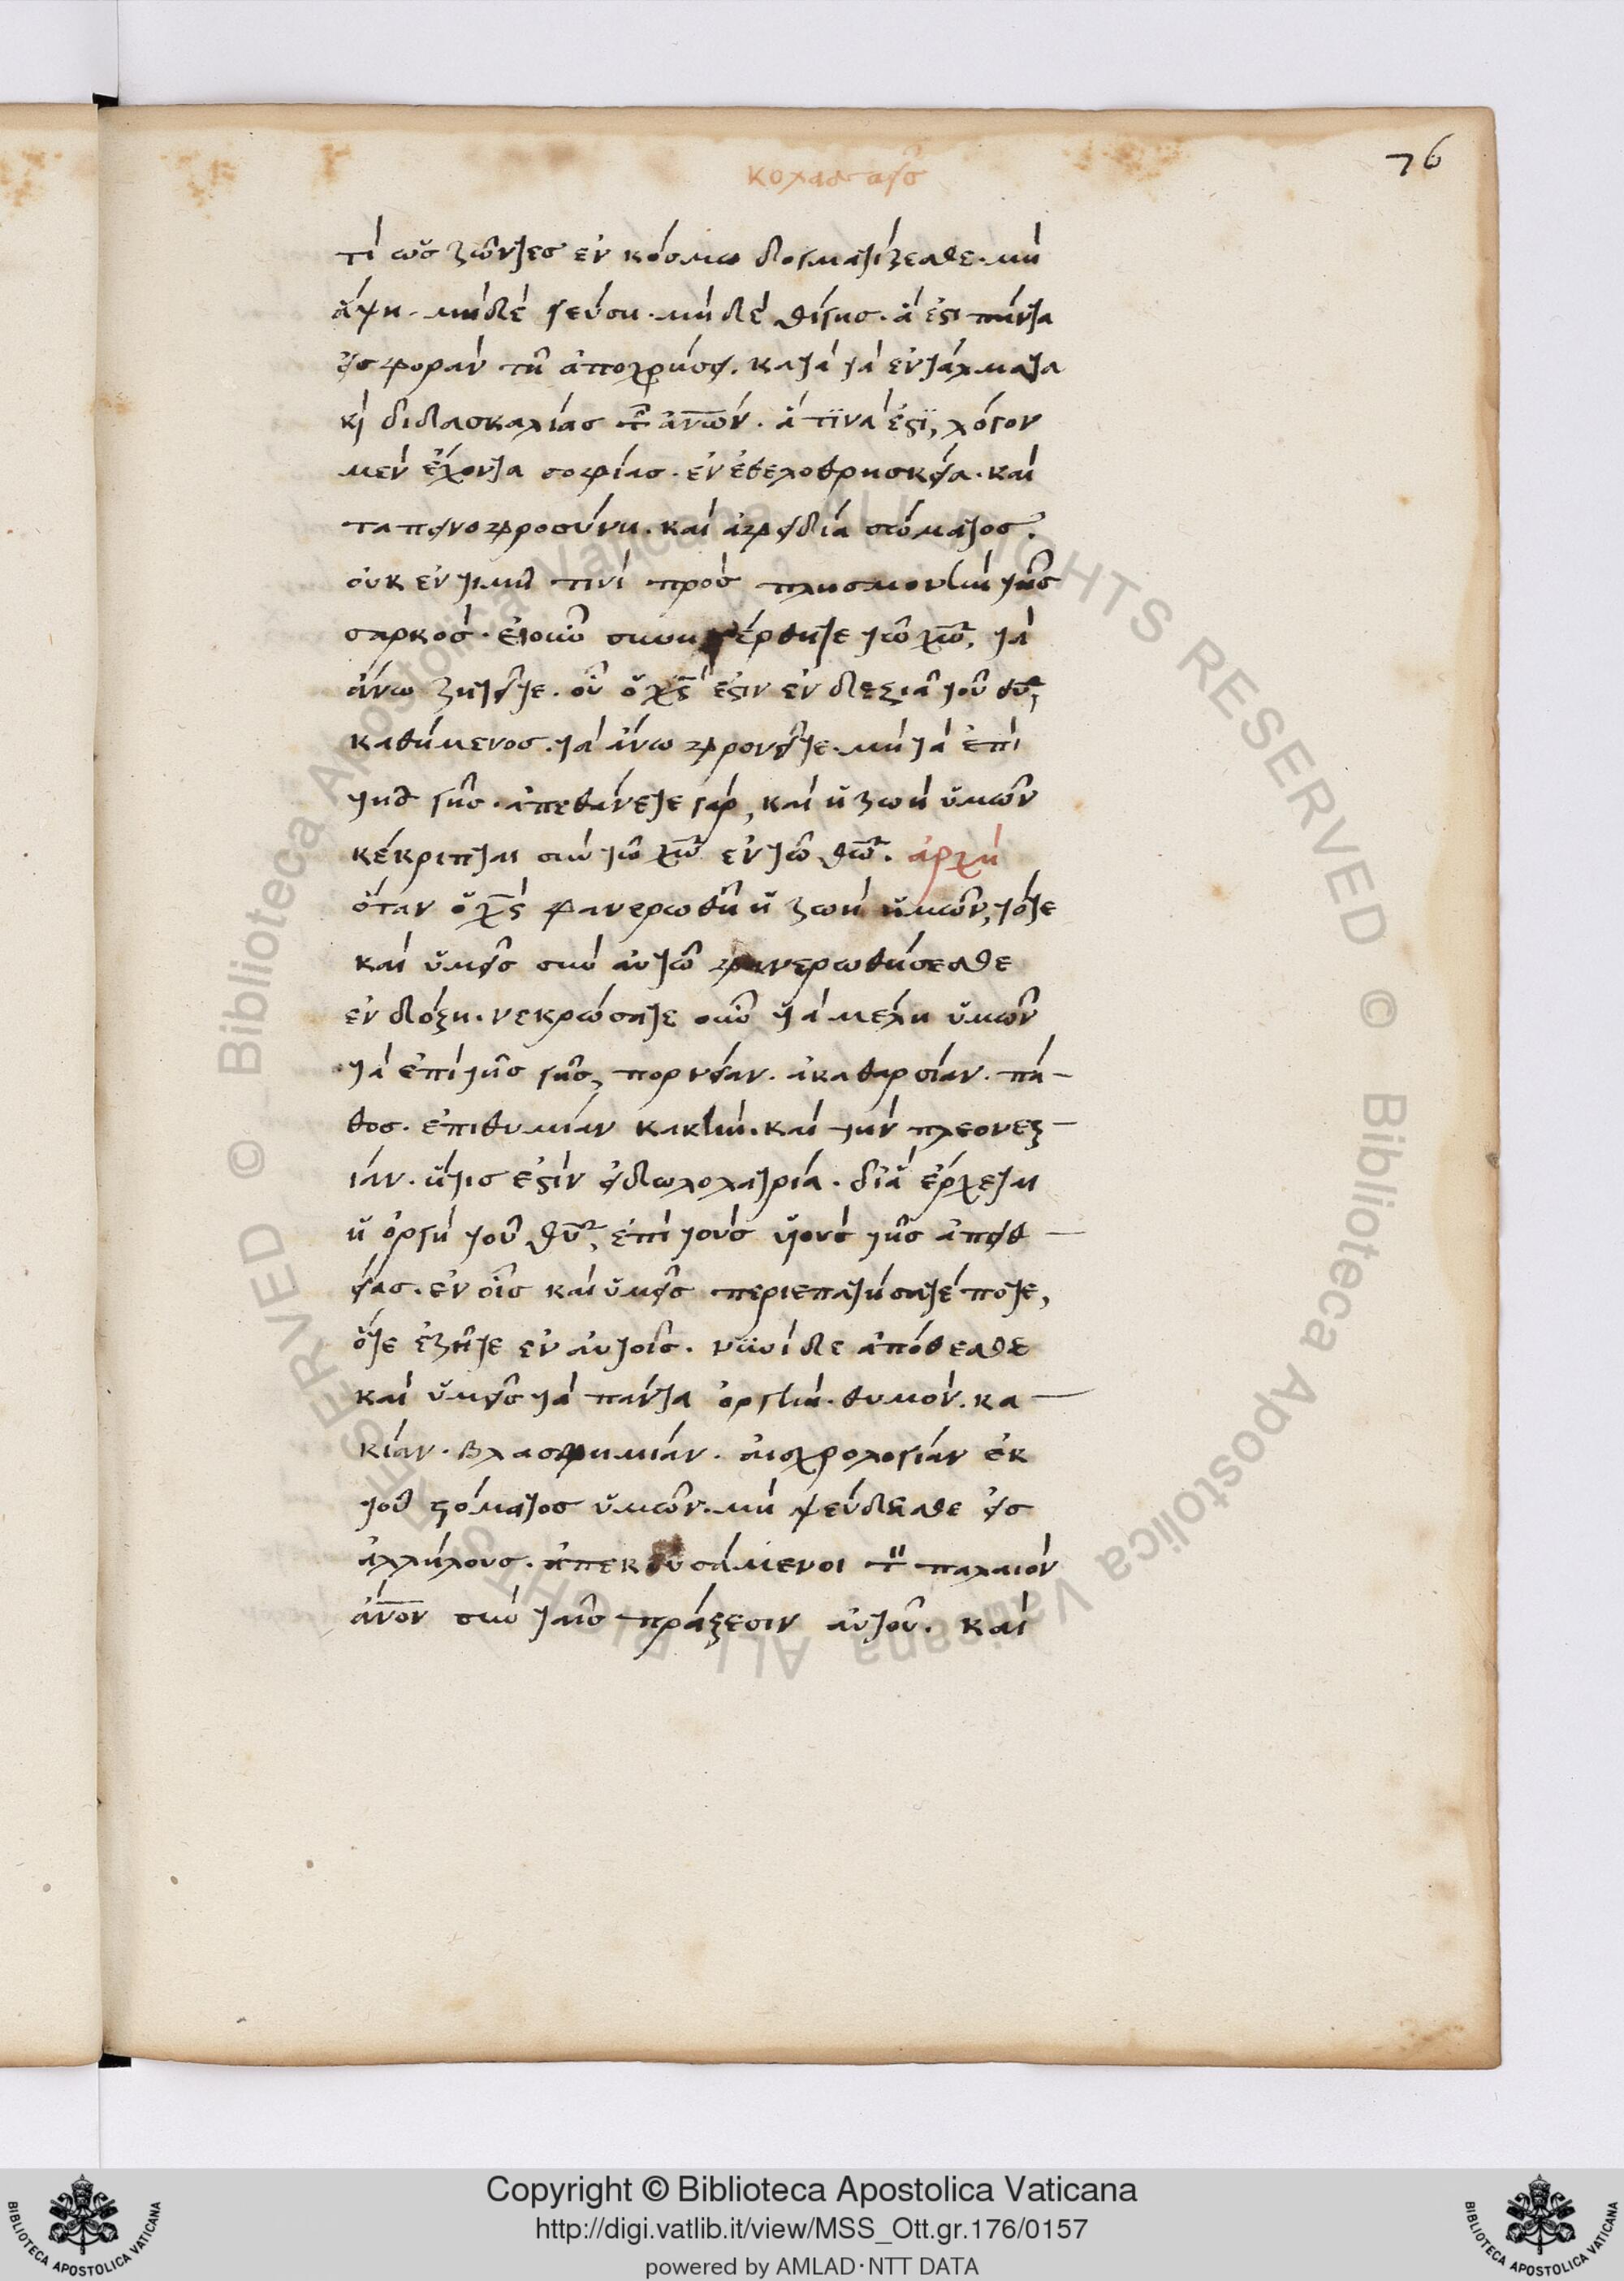 76
κολασαεῖς
τί ὡς ζῶντες ἐν κόσμω δογματίζεσθε. μὴ
ἅψη. μὴδὲ γεύση. μὴδὲ θίγης. ἅ ἐστι πάντα
εἰς φθορὰν τῆ ἀποχρήσει. κατὰ τὰ ἐντάλματα
κ(αὶ) διδασκαλίας τ(ῶν) ἀν̅ων. ἅ τϊνά ἐστϊ, λόγον
μὲν ἔχοντα σοφίας. ἐν ἐθελοθρησκεία. καὶ
ταπεινοφροσύνη. καὶ ἀφειδία σώματος.
οὐκ ἐν τιμῆ τινὶ πρὸς πλησμονὴν τῆς
σαρκὸς. εἰ οὖν συνηγέρθητε τῶ χ̅ω, τὰ
ἄνω ζητεῖτε. οὗ ὁ χ̅ς ἐστιν ἐν δεξιᾶ τοῦ θ̅υ,
καθήμενος. τὰ ἄνω φρονεῖτε. μὴ τὰ ἐπὶ
τῆς γῆς. ἀπεθάνετε γὰρ, καὶ ἡ ζωὴ ὑμῶν
κέκριπται σὺν τῶ χ̅ω ἐν τῶ θ̅ω. ἀρχὴ
ὅταν ὁ χ̅ς φανερωθῆ ἡ ζωὴ ὑμῶν, τότε
καὶ ὑμεῖς σὺν αὐτῶ φανερωθήσεσθε
ἐν δόξη. νεκρώσατε οὖν τὰ μέλη ὑμῶν
τὰ ἐπὶ τῆς γῆς, πορνείαν. ἀκαθαρσίαν. πά-
θος. ἐπιθυμίαν κακὴν. καὶ τὴν πλεονεξ-
ίαν. ἥτις ἐστὶν εἰδωλολατρία. δι' ἃ ἔρχεται
ἡ ὀργὴ τοῦ θ̅υ, ἐπὶ τοὺς υἱοὺς τῆς ἀπειθ-
είας. ἐν οἷς καὶ ὑμεῖς περιεπατήσατέ ποτε,
ὅτε ἐζῆτε ἐν αὐτοῖς. νῡνὶ δὲ ἀπόθεσθε
καὶ ὑμεῖς τὰ πάντα ὀργὴν. θυμὸν. κα-
κίαν. βλασφημίαν. αἰσχρολογίαν ἐκ
τοῦ στόματος ὑμῶν. μὴ ψεύδεσθε εἰς
ἀλλήλους. ἀπεκδυσάμενοι τ(ὸν) παλαιὸν
ἄν̅ον σὺν ταῖς πράξεσιν αὐτοῦ. καὶ
© Biblioteca Apostolica Vaticana ALL RIGHTS RESERVED © Biblioteca Apostolica Vaticana ALL RIGHTS RESERVED
Copyright © Biblioteca Apostolica Vaticana
http://digi.vatlib.it/view/MSS_Ott.gr.176/0157
powered by AMLAD·NTT DATA
BIBLIOTECA APOSTOLICA VATICANA
BIBLIOTECA APOSTOLICA VATICANA